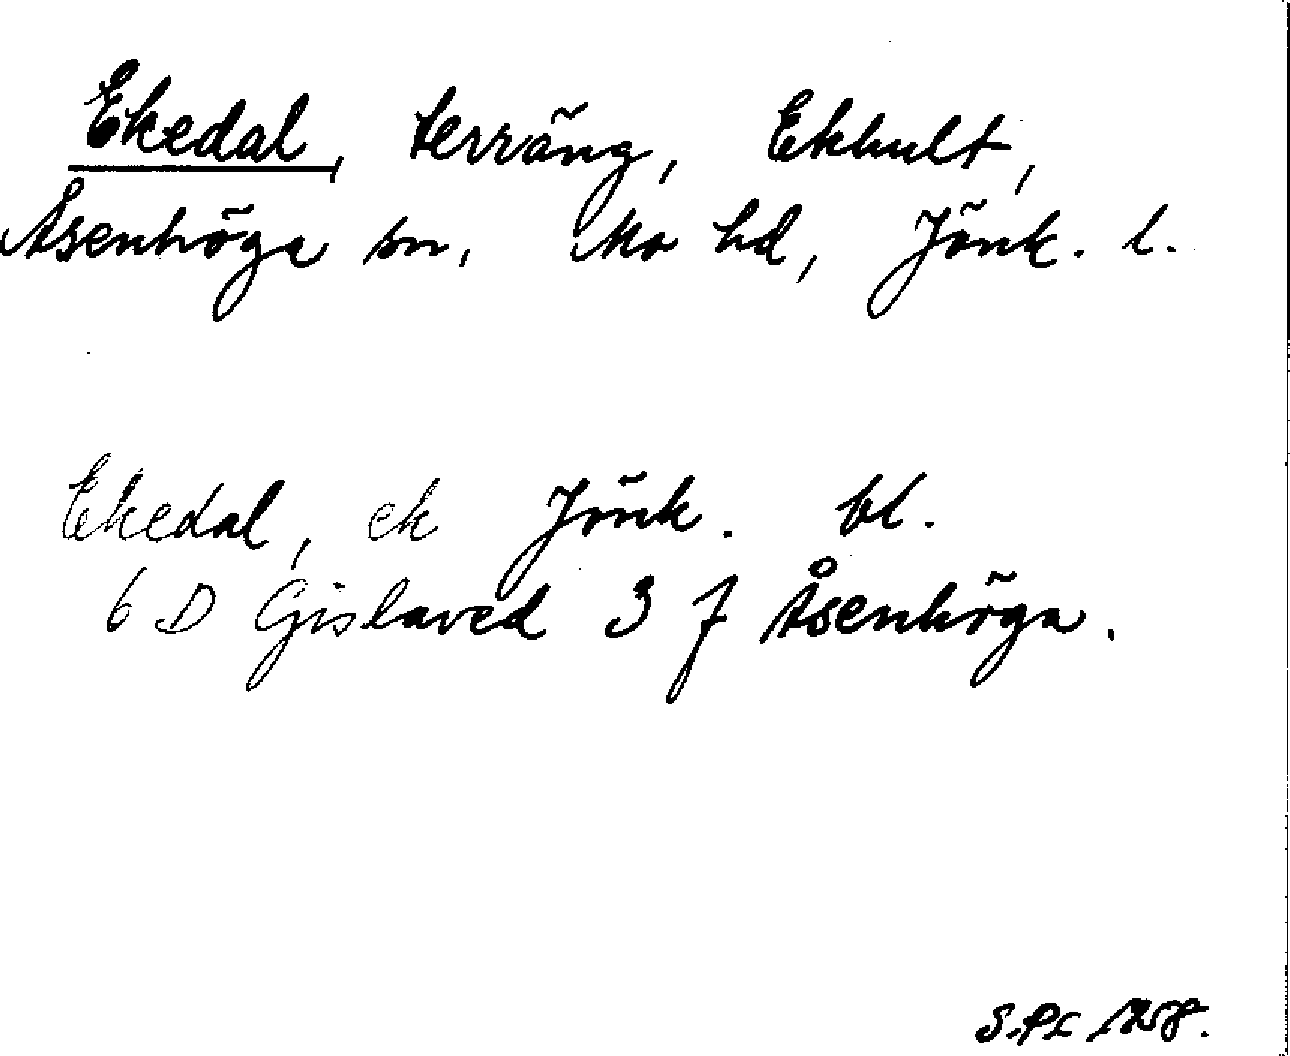 Ekedal, terräng, Ekhult,
Åsenhöga sn, Mo hd, Jönk. l.
Ekedal, ek Jönk. bl.
6 D Gislaved 3 J Åsenhöga.